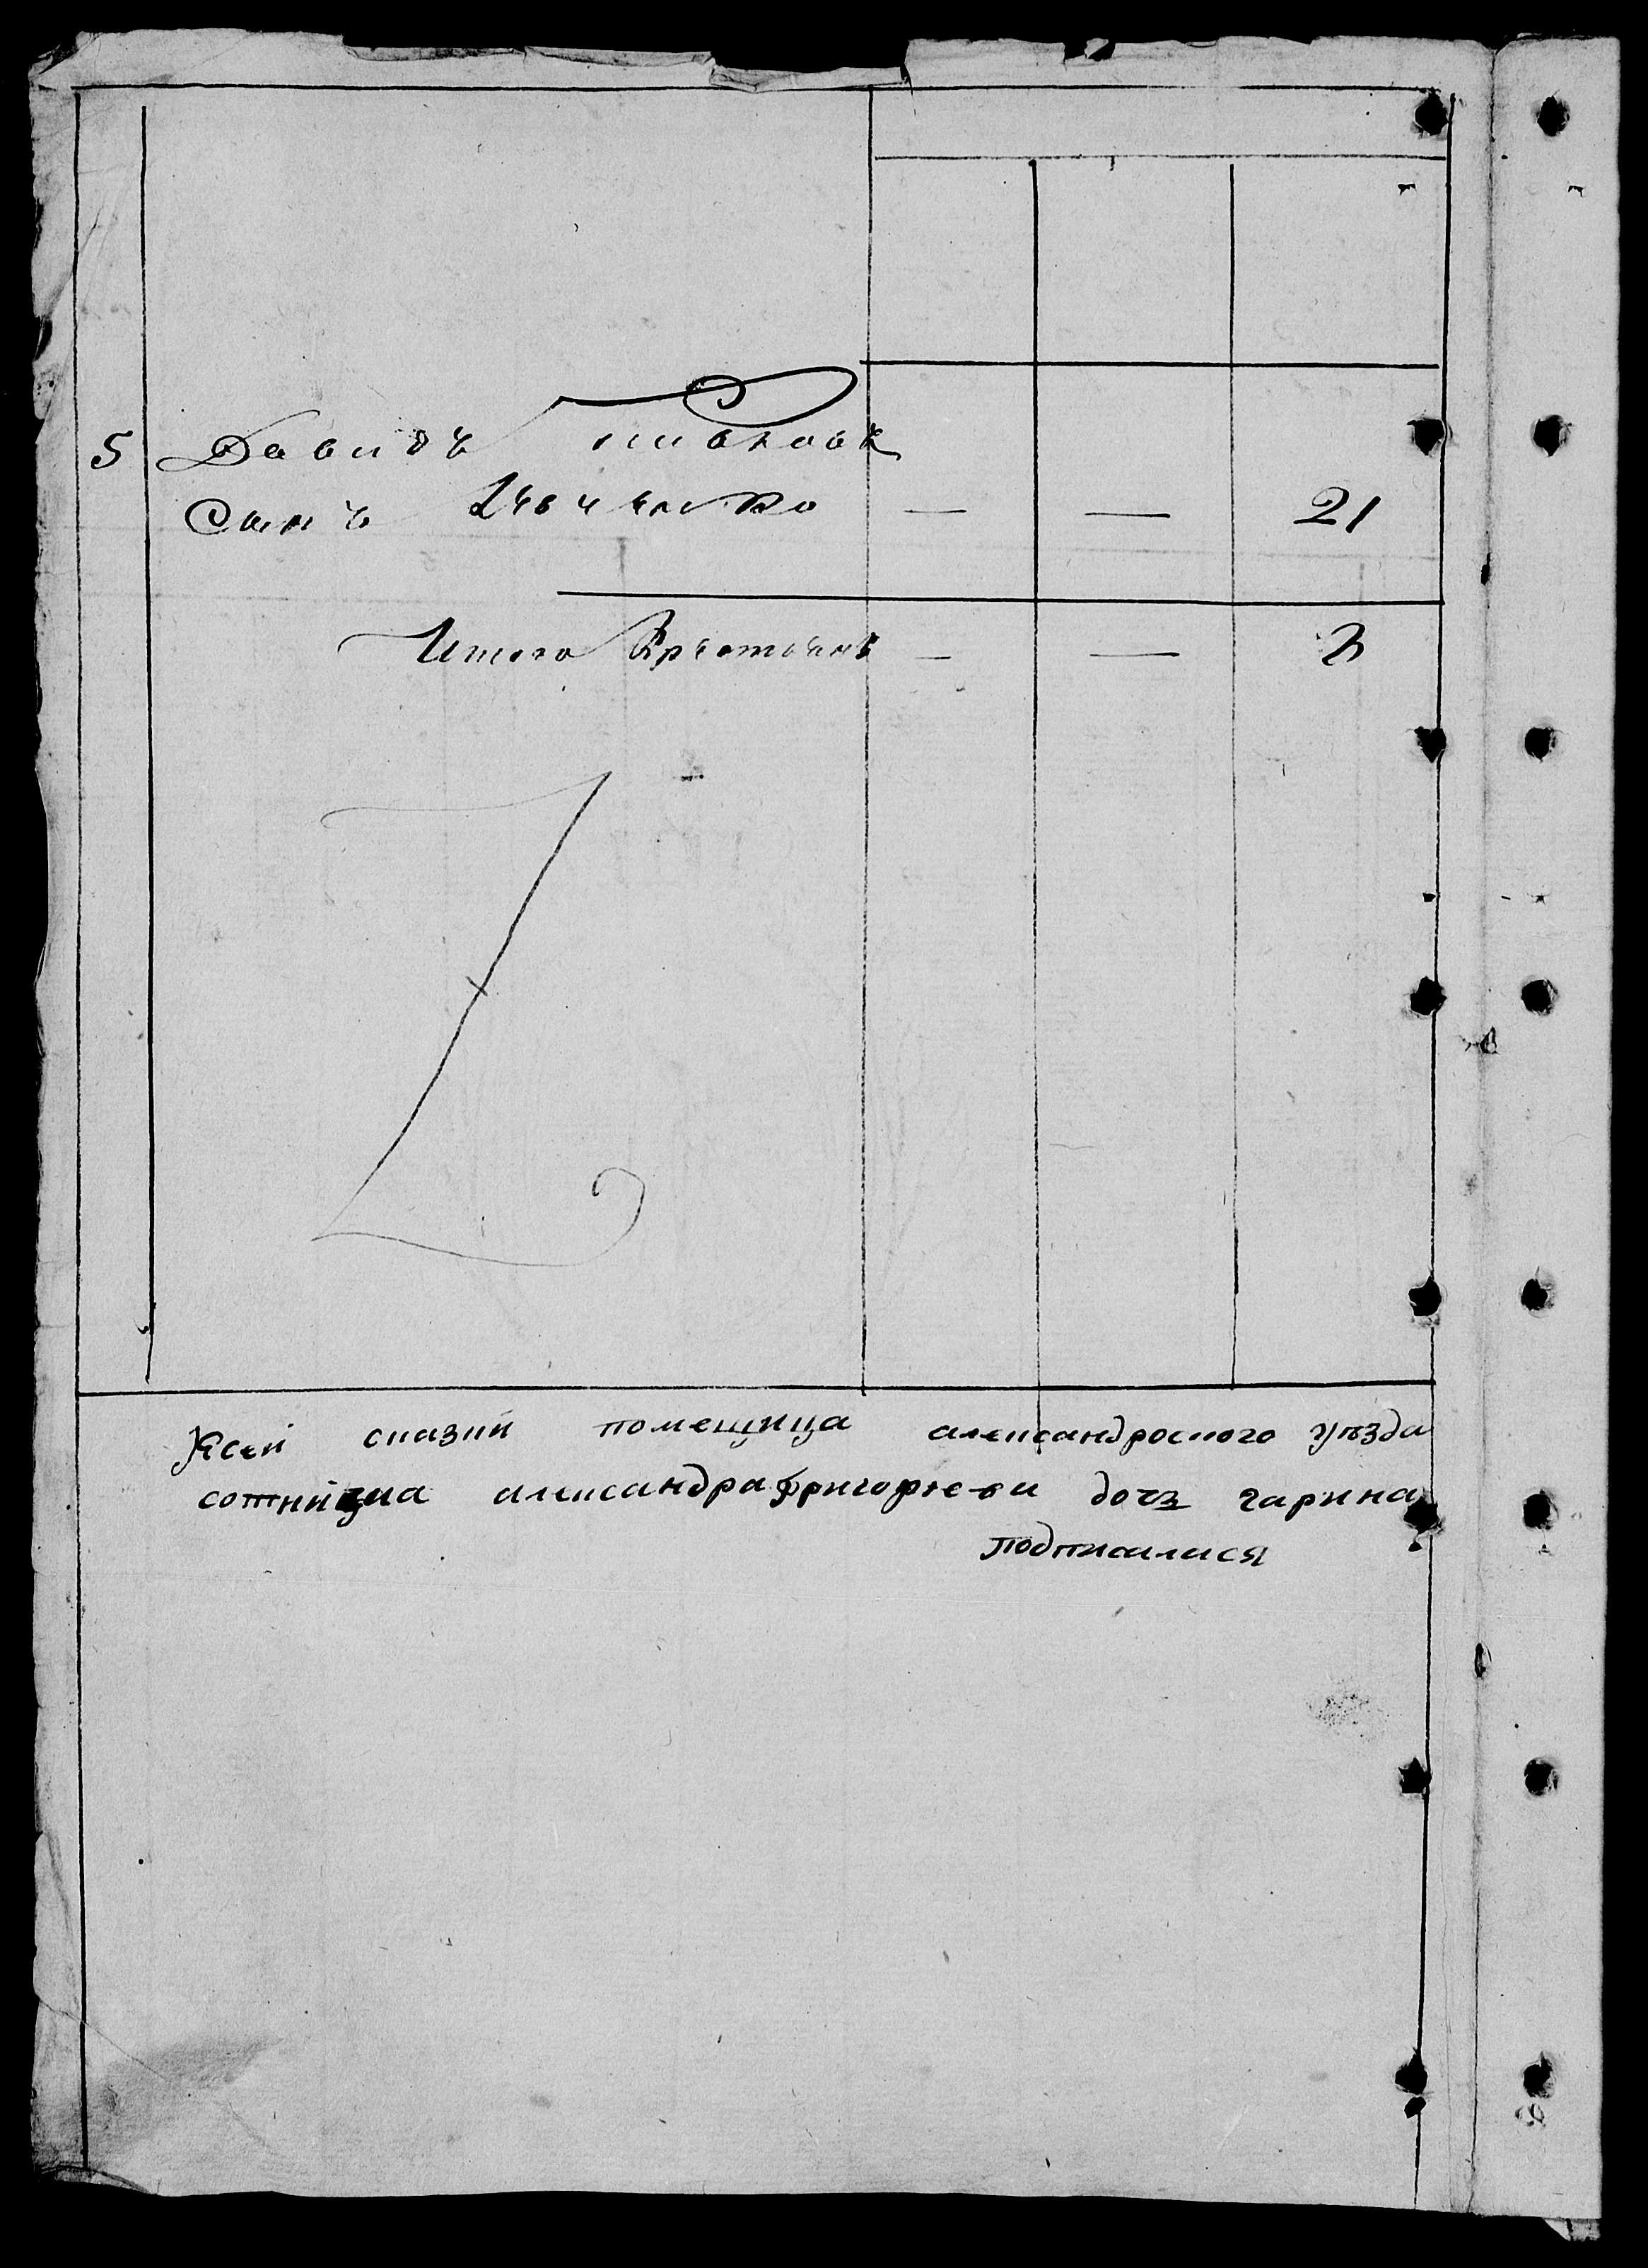 5 Давидъ
Сынъ Левченко — — 21
Итого Крестьянъ — — 3
Ксей сказки помещица александроского уѣзда
сотницка александра григорьева дочъ гарина
подписалася